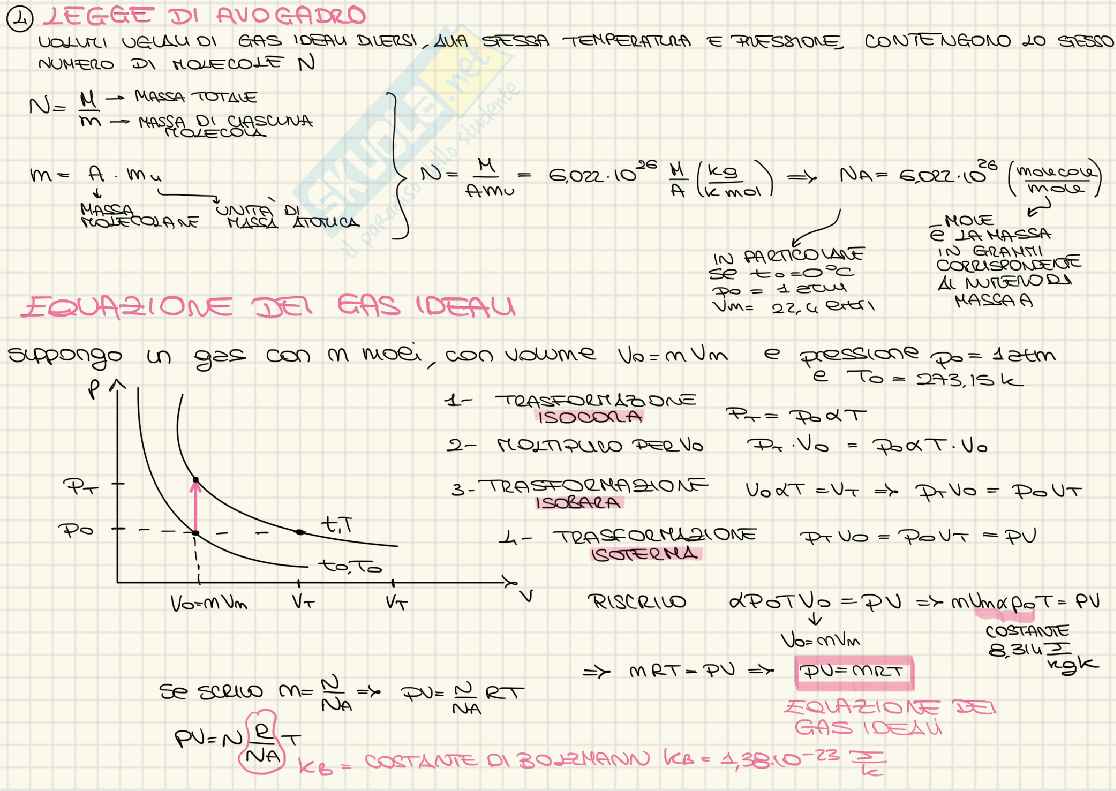 4 LEGGE DI AVOGADRO
VOLUMI UGUALI DI GAS IDEALI DIVERSI, ALLA STESSA TEMPERATURA E PRESSIONE, CONTENGONO LO STESSO
NUMERO DI MOLECOLE N
N = M/m → MASSA TOTALE
→ MASSA DI CIASCUNA MOLECOLA
m = A · mu
MASSA MOLECOLARE
UNITÀ DI MASSA ATOMICA
N = M/Amu = 6,022·10^26 M/A (kg/kmol) => NA = 6,022·10^26 (molecole/mole)
IN PARTICOLARE
se t0=0°C
p0 = 1 atm
Vm = 22,4 litri
MOLE
È LA MASSA
IN GRAMMI
CORRISPONDENTE
AL NUMERO DI
MASSA A
SKUOLA.net
EQUAZIONE DEI GAS IDEALI
suppongo un gas con n moli, con volume V0 = nVm e pressione p0 = 1 atm
e T0 = 273,15 k
P
PT
P0
t,T
t0,T0
V0=nVm VT VT V
1- TRASFORMAZIONE ISOCORA PT = P0αT
2- MOLTIPLICO PER V0 PT · V0 = P0αT · V0
3- TRASFORMAZIONE ISOBARA V0αT = VT => PTV0 = P0VT
4- TRASFORMAZIONE ISOTERMA PTV0 = P0VT = PV
RISCRIVO αP0TV0 = PV => nVmαp0T = PV
V0 = nVm
COSTANTE
8,314 J/kgk
=> nRT = PV => PV = nRT
EQUAZIONE DEI
GAS IDEALI
Se scrivo n = N/NA => PV = N/NA RT
PV = N R/NA T
KB = COSTANTE DI BOLZMANN KB = 1,38·10^-23 J/k